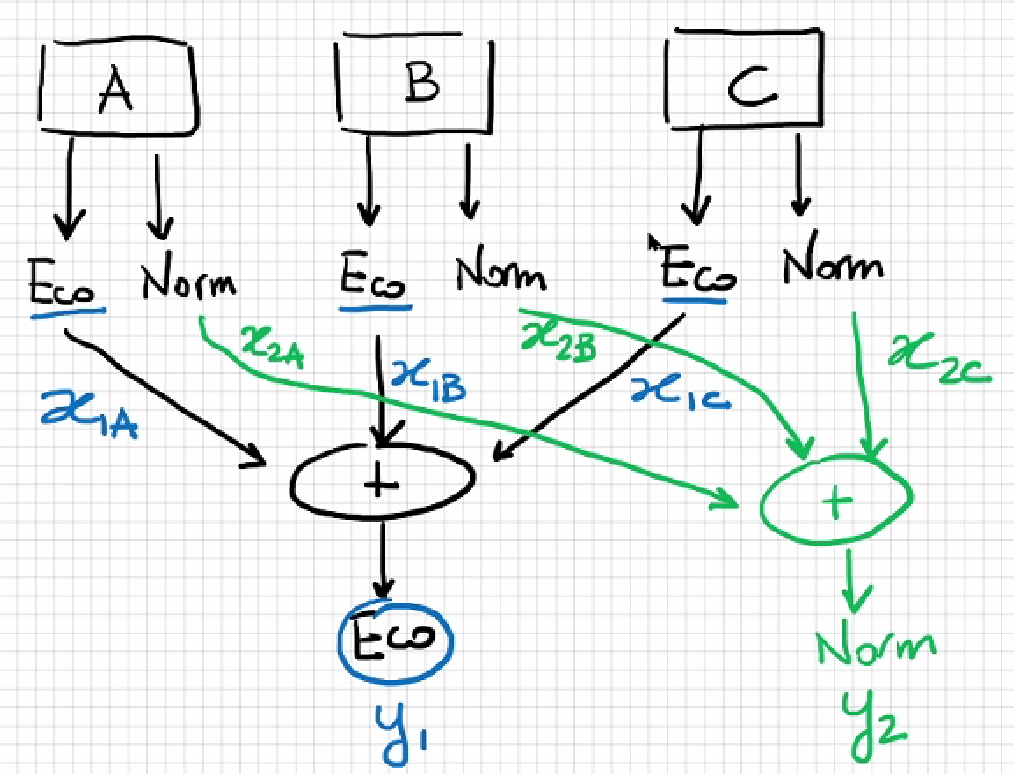 A B C
Eco Norm Eco Norm Eco Norm
x2A x2B x2C
x1A x1B x1C
+ +
Eco Norm
y1 y2